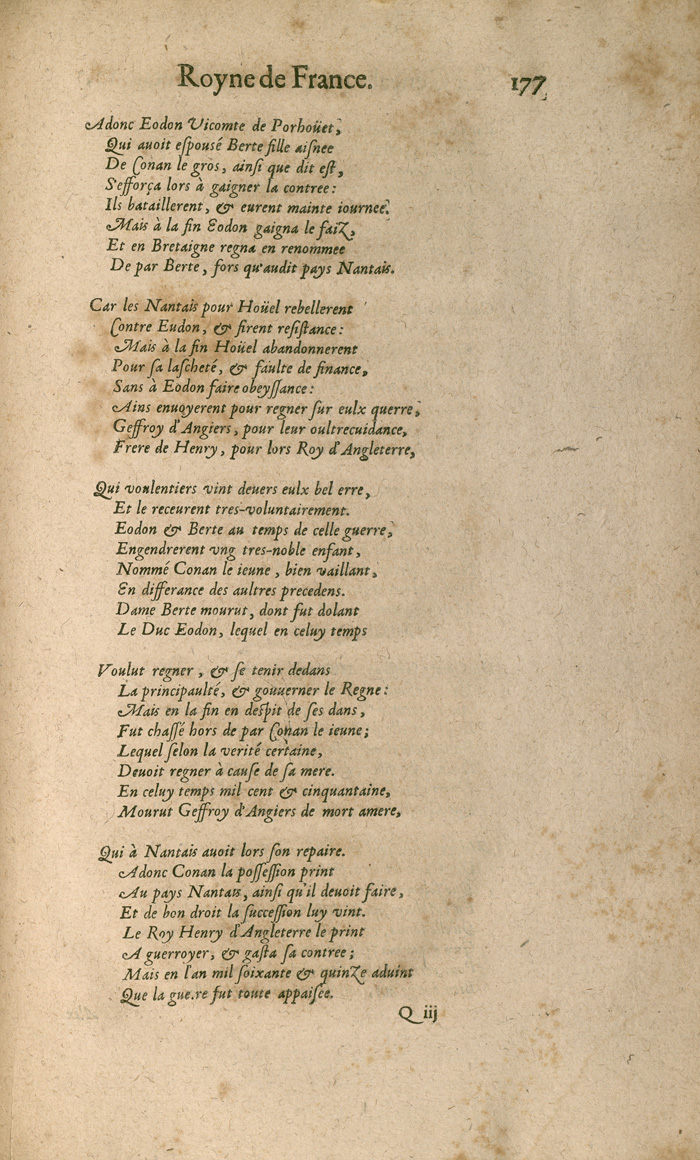 Royne de France. 177
Adonc Eodon Vicomte de Porhoüet,
Qui auoit eſpousé Berte fille aiſnee
De Conan le gros, ainſi que dit eſt,
S'efforça lors à gaigner la contree:
Ils bataillerent, & eurent mainte iournee.
Mais à la fin Eodon gaigna le faiz,
Et en Bretaigne regna en renommee
De par Berte, fors qu'audit pays Nantais.
Car les Nantais pour Hoüel rebellerent
Contre Eudon, & firent reſiſtance:
Mais à la fin Hoüel abandonnerent
Pour ſa laſcheté, & faulte de finance,
Sans à Eodon faire obeyſſance:
Ains enuoyerent pour regner ſur eulx querre,
Geffroy d'Angiers, pour leur oultrecuidance,
Frere de Henry, pour lors Roy d'Angleterre,
Qui voulentiers vint deuers eulx bel erre,
Et le receurent tres-voluntairement.
Eodon & Berte au temps de celle guerre,
Engendrerent vng tres-noble enfant,
Nommé Conan le ieune, bien vaillant,
En differance des aultres precedens.
Dame Berte mourut, dont fut dolant
Le Duc Eodon, lequel en celuy temps
Voulut regner, & ſe tenir dedans
La principaulté, & gouuerner le Regne:
Mais en la fin en deſpit de ſes dans,
Fut chaſſé hors de par Conan le ieune;
Lequel ſelon la verité certaine,
Deuoit regner à cauſe de ſa mere.
En celuy temps mil cent & cinquantaine,
Mourut Geffroy d'Angiers de mort amere,
Qui à Nantais auoit lors ſon repaire.
Adonc Conan la poſſeſſion print
Au pays Nantais, ainſi qu'il deuoit faire,
Et de bon droit la ſucceſſion luy vint.
Le Roy Henry d'Angleterre le print
A guerroyer, & gaſta ſa contree;
Mais en l'an mil ſoixante & quinze aduint
Que la guerre fut toute appaiſee.
Q iij